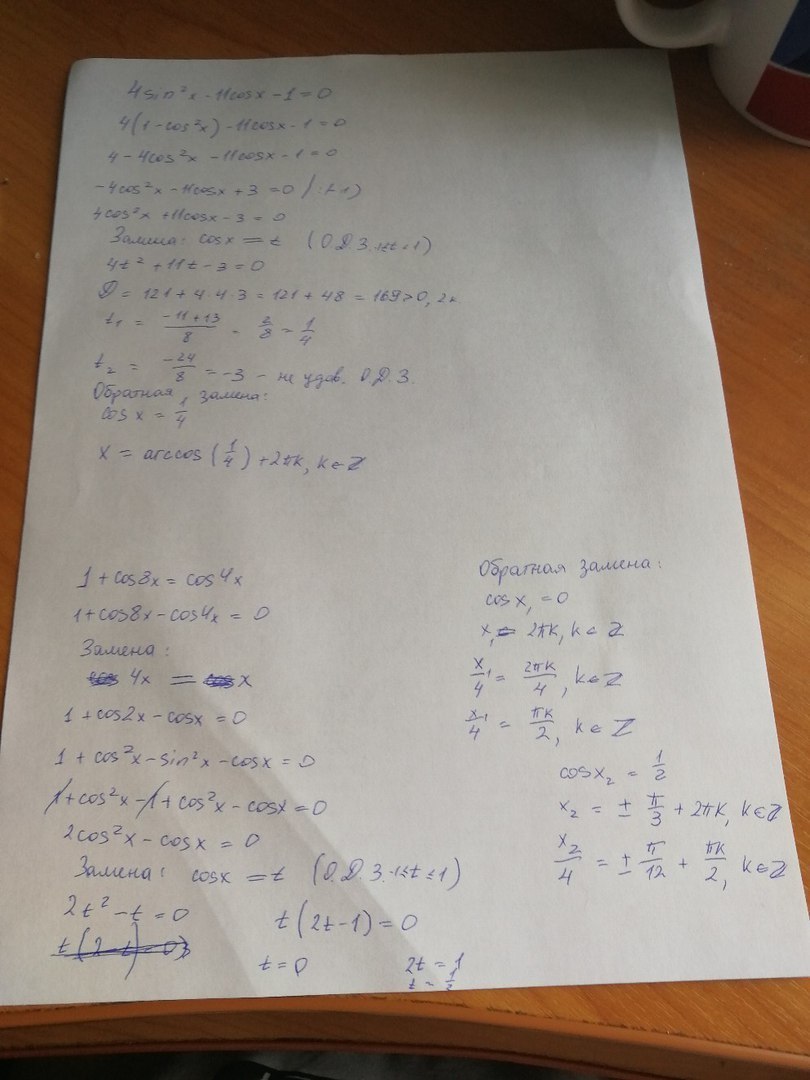 4sin²x - 11cosx - 1 = 0
4(1 - cos²x) - 11cosx - 1 = 0
4 - 4cos²x - 11cosx - 1 = 0
-4cos²x - 11cosx + 3 = 0 /:(-1)
4cos²x + 11cosx - 3 = 0
Замена: cosx = t (О.Д.З. -1≤t≤1)
4t² + 11t - 3 = 0
D = 121 + 4·4·3 = 121 + 48 = 169 > 0, 2к
t₁ = (-11+13)/8 = 2/8 = 1/4
t₂ = -24/8 = -3 - не удов. О.Д.З.
Обратная замена:
cos x = 1/4
x = arccos(1/4) + 2πk, k∈Z
1 + cos8x = cos4x
1 + cos8x - cos4x = 0
Замена:
4x = x
1 + cos2x - cosx = 0
1 + cos²x - sin²x - cosx = 0
1 + cos²x - 1 + cos²x - cosx = 0
2cos²x - cosx = 0
Замена: cosx = t (О.Д.З. -1≤t≤1)
2t² - t = 0
t(2t-1) = 0
t = 0
2t = 1
t = 1/2
Обратная замена:
cosx₁ = 0
x₁ = 2πk, k∈Z
x₁/4 = 2πk/4, k∈Z
x₁/4 = πk/2, k∈Z
cosx₂ = 1/2
x₂ = ± π/3 + 2πk, k∈Z
x₂/4 = ± π/12 + πk/2, k∈Z